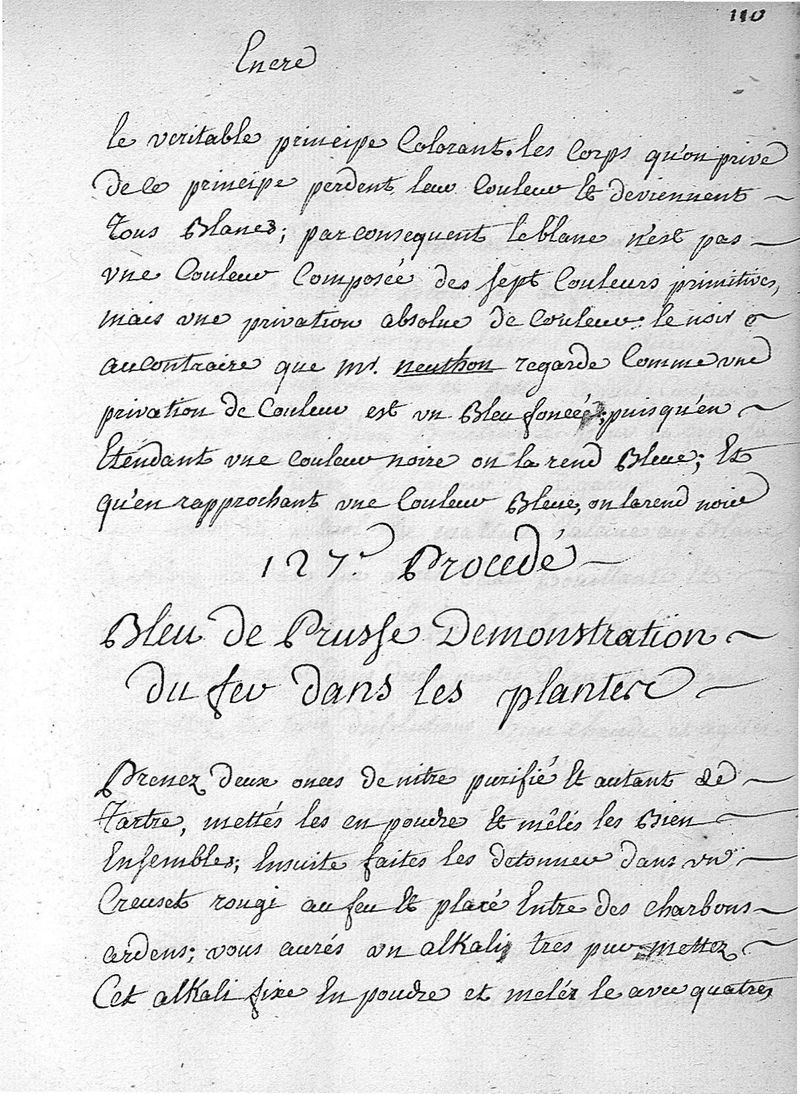 110
Encre
le veritable principe Colorant. les Corps qu'on prive
de ce principe perdent leur Couleur Et deviennent
tous Blancs; par consequent le blanc n'est pas
vne Couleur Composée des sept Couleurs primitives,
mais vne privation absolue de Couleur. le noir
au contraire que mr. neuthon regarde Comme vne
privation de Couleur est vn Bleu foncé; puisqu'en
Etendant vne couleur noire on la rend Bleue; Et
qu'en rapprochant vne Couleur Bleue, on la rend noire
127. Procede
Bleu de Prusse Demonstration
du feu dans les plantes
Prenez deux onces de nitre purifié Et autant de
Tartre, mettés les en poudre Et mêlés les Bien
Ensembles; Ensuite faites les detonner dans vn
Creuset rougi au feu Et placé Entre des charbons
ardens; vous aurés un alkali tres pur mettez
Cet alkali fixe En poudre et meléz le avec quatres